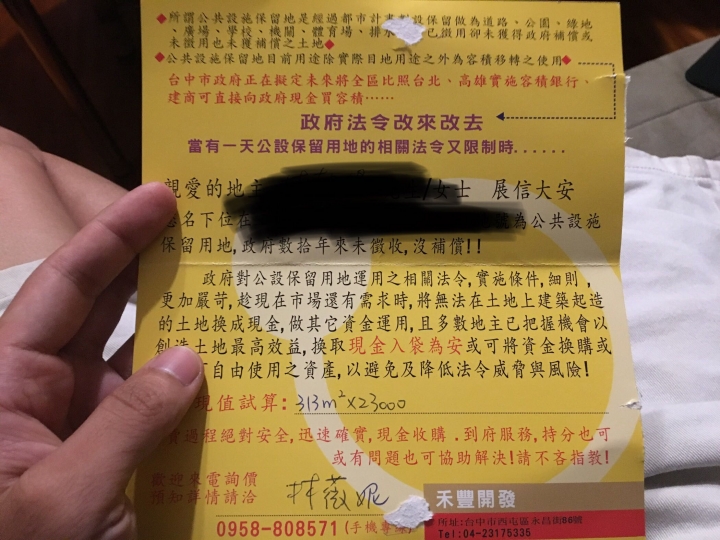 ◆所謂公共設施保留地是經過都市計畫劃設保留做為道路、公園、綠地
、廣場、學校、機關、體育場、排水 已徵用卻未獲得政府補償或
未徵用也未獲補償之土地◆
◆公共設施保留地目前用途除實際目地用途之外為容積移轉之使用◆
台中市政府正在擬定未來將全區比照台北、高雄實施容積銀行、
建商可直接向政府現金買容積......
政府法令改來改去
當有一天公設保留用地的相關法令又限制時......
親愛的地主 /女士 展信大安
名下位在 為公共設施
保留用地,政府數拾年來未徵收,沒補償!!
政府對公設保留用地運用之相關法令,實施條件,細則,
更加嚴苛,趁現在市場還有需求時,將無法在土地上建築起造
的土地換成現金,做其它資金運用,且多數地主已把握機會以
創造土地最高效益,換取現金入袋為安或可將資金換購成
自由使用之資產,以避免及降低法令威脅與風險!
現值試算:313m²×23000
過程絕對安全,迅速確實,現金收購.到府服務,持分也可
或有問題也可協助解決!請不吝指教!
歡迎來電詢價
預知詳情請洽 林薇妮
禾豐開發
0958-808571(手機專線)
所址:台中市西屯區永昌街86號
Tel:04-23175335